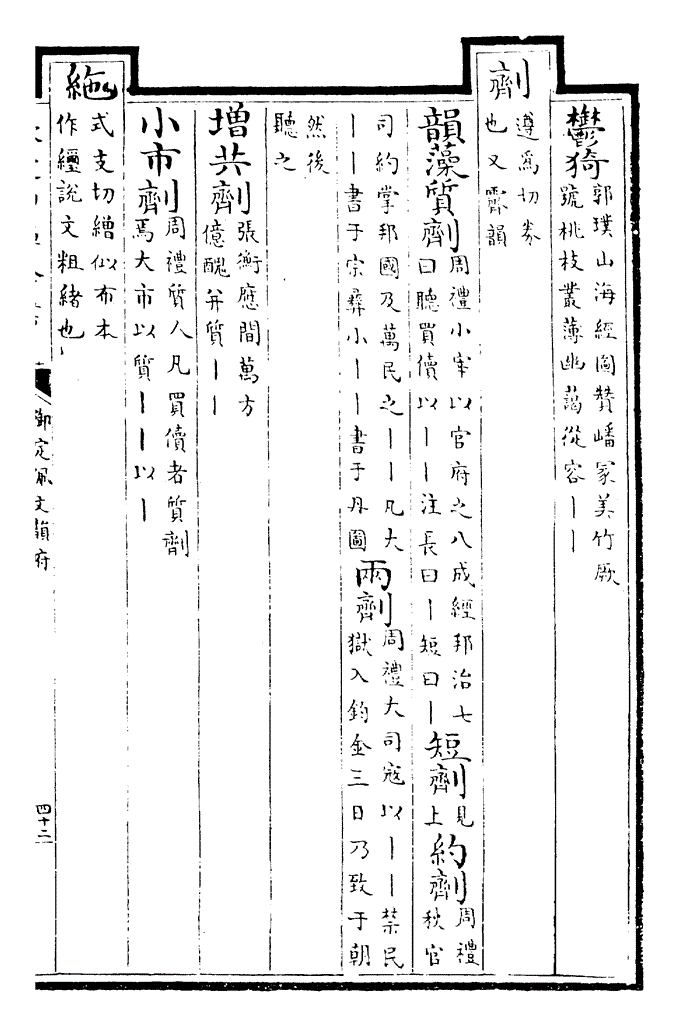 鬱猗
郭璞山海經圖贊嶓冢美竹厥
號桃枝叢薄幽藹從容丨丨
劑
遵為切券
也又霽韻
韻藻質劑
周禮小宰以官府之八成經邦治七
曰聽買儥以丨丨注長曰丨短曰丨
短劑
見
上
約劑
周禮
秋官
司約掌邦國及萬民之丨丨凡大
丨丨書于宗彝小丨丨書于丹圖
兩劑
周禮大司寇以丨丨禁民
獄入鈞金三日乃致于朝
然後
聽之
增共劑
張衡應間萬方
億醜并質丨丨
小市劑
周禮質人凡買儥者質劑
焉大市以質丨丨以丨
絁
式支切繒似布本
作䌳說文粗緒也
御定佩文韻府
四十二